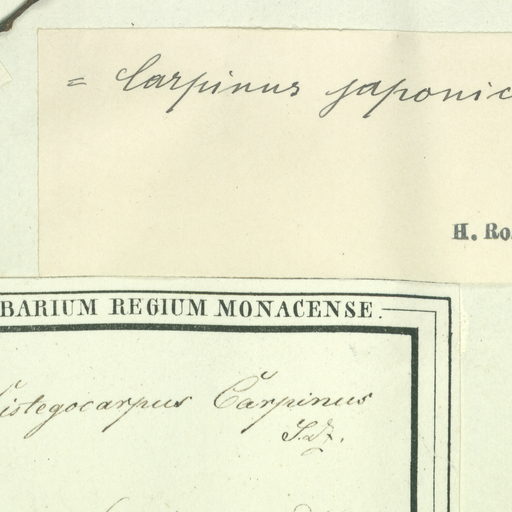 = Carpinus japonic
H. Ro
BARIUM REGIUM MONACENSE.
istegocarpus Carpinus
S. & Z.